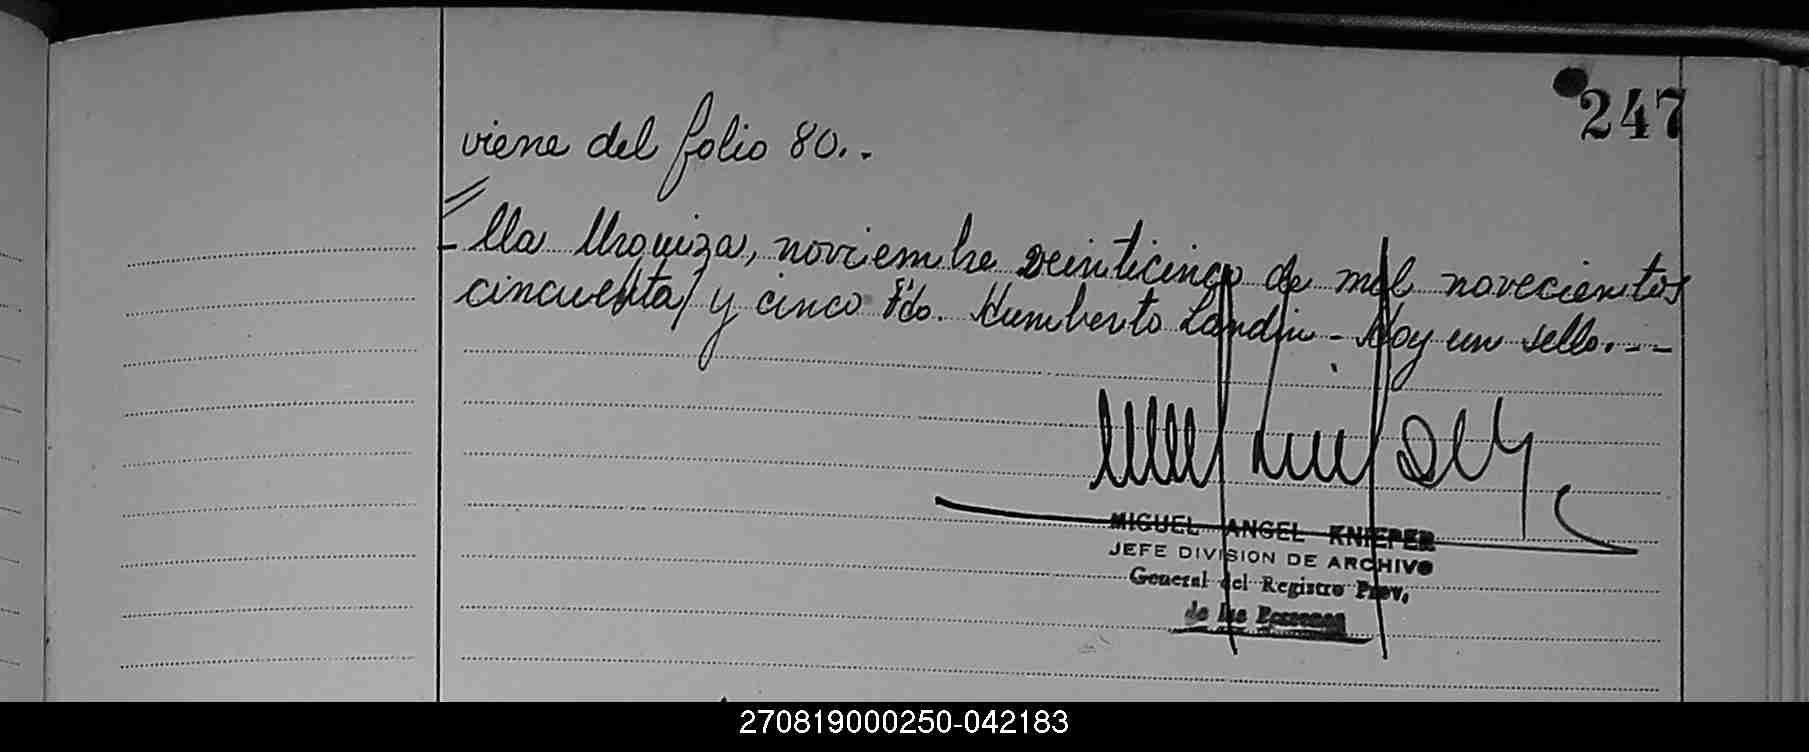 247
viene del folio 80..
lla Urquiza, noviembre veinticinco de mil novecientos
cincuenta y cinco Fdo. Humberto Landin - Hay un sello.--
MIGUEL ANGEL KNIEPER
JEFE DIVISION DE ARCHIVO
General del Registro Prov.
de las Personas
270819000250-042183